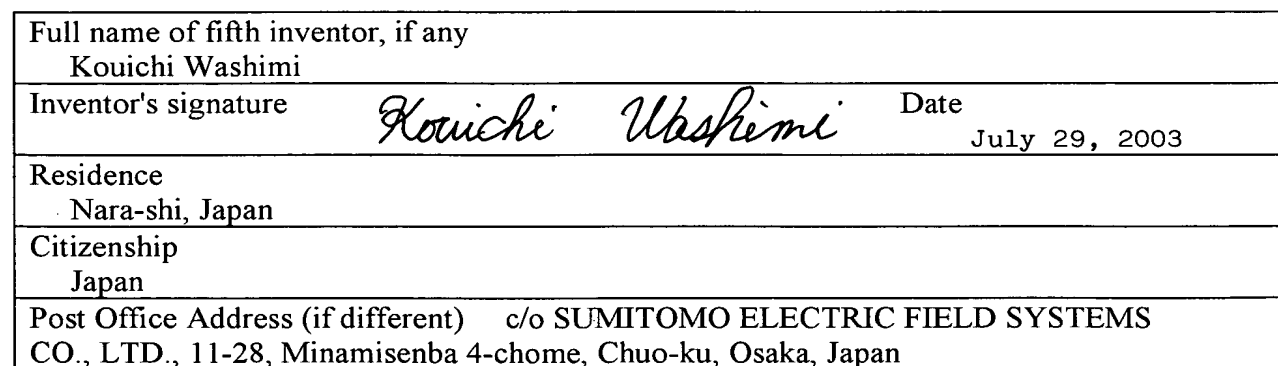 Full name of fifth inventor, if any
Kouichi Washimi
Inventor's signature Kouichi Washimi Date
July 29, 2003
Residence
Nara-shi, Japan
Citizenship
Japan
Post Office Address (if different) c/o SUMITOMO ELECTRIC FIELD SYSTEMS
CO., LTD., 11-28, Minamisenba 4-chome, Chuo-ku, Osaka, Japan